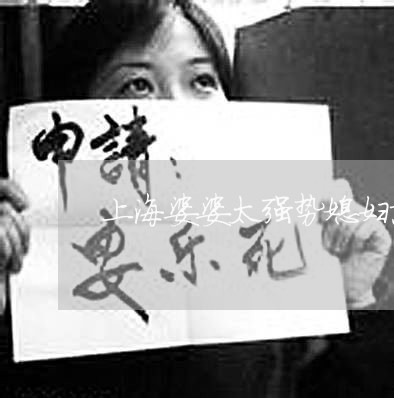 申請：
上海婆婆太强势媳妇
安乐死